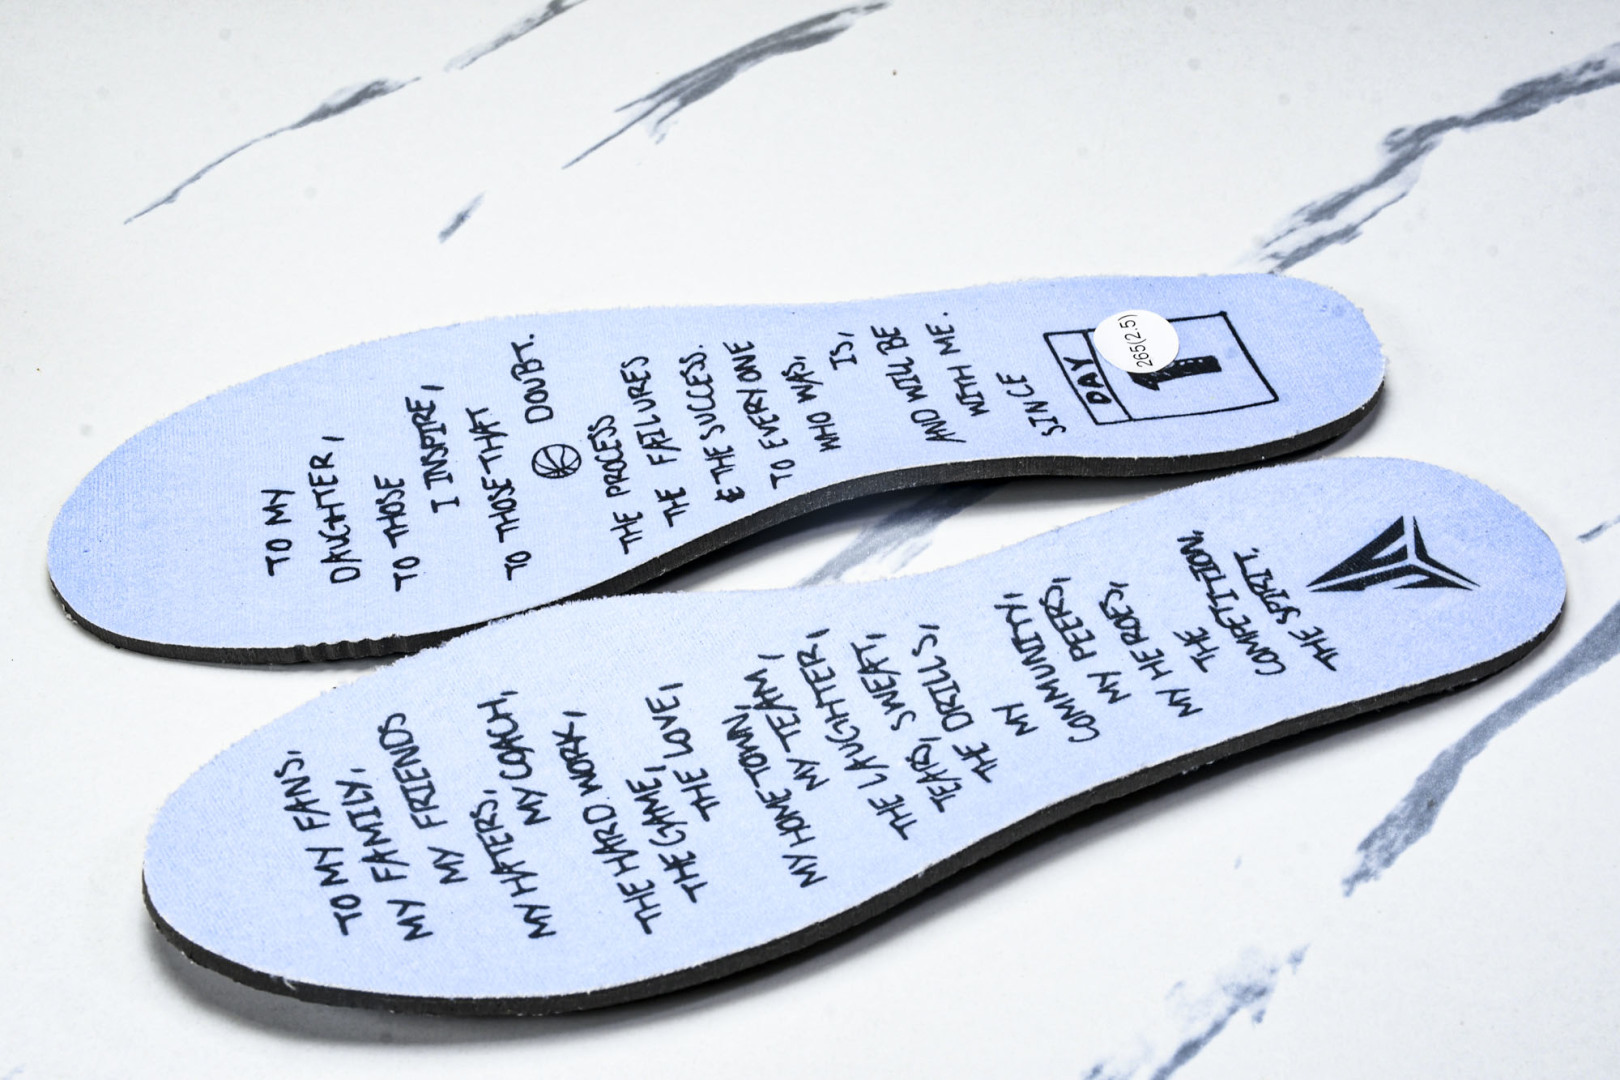 TO MY
DAUGHTER,
TO THOSE
I INSPIRE,
TO THOSE THAT
DOUBT.
THE PROCESS
THE FAILURES
& THE SUCCESS.
TO EVERY ONE
WHO WAS,
IS,
AND WILL BE
WITH ME.
SINCE
DAY
1
265(2.5)
TO MY FANS,
MY FAMILY,
MY FRIENDS
MY HATERS,
MY COACH,
THE HARD WORK,
THE GAME,
THE LOVE,
MY HOME TOWN,
MY TEAM,
THE LAUGHTER,
TEARS, SWEAT,
THE DRILLS,
MY
COMMUNITY,
MY PEERS,
MY HEROES,
THE
COMPETITION,
THE SPIRIT.